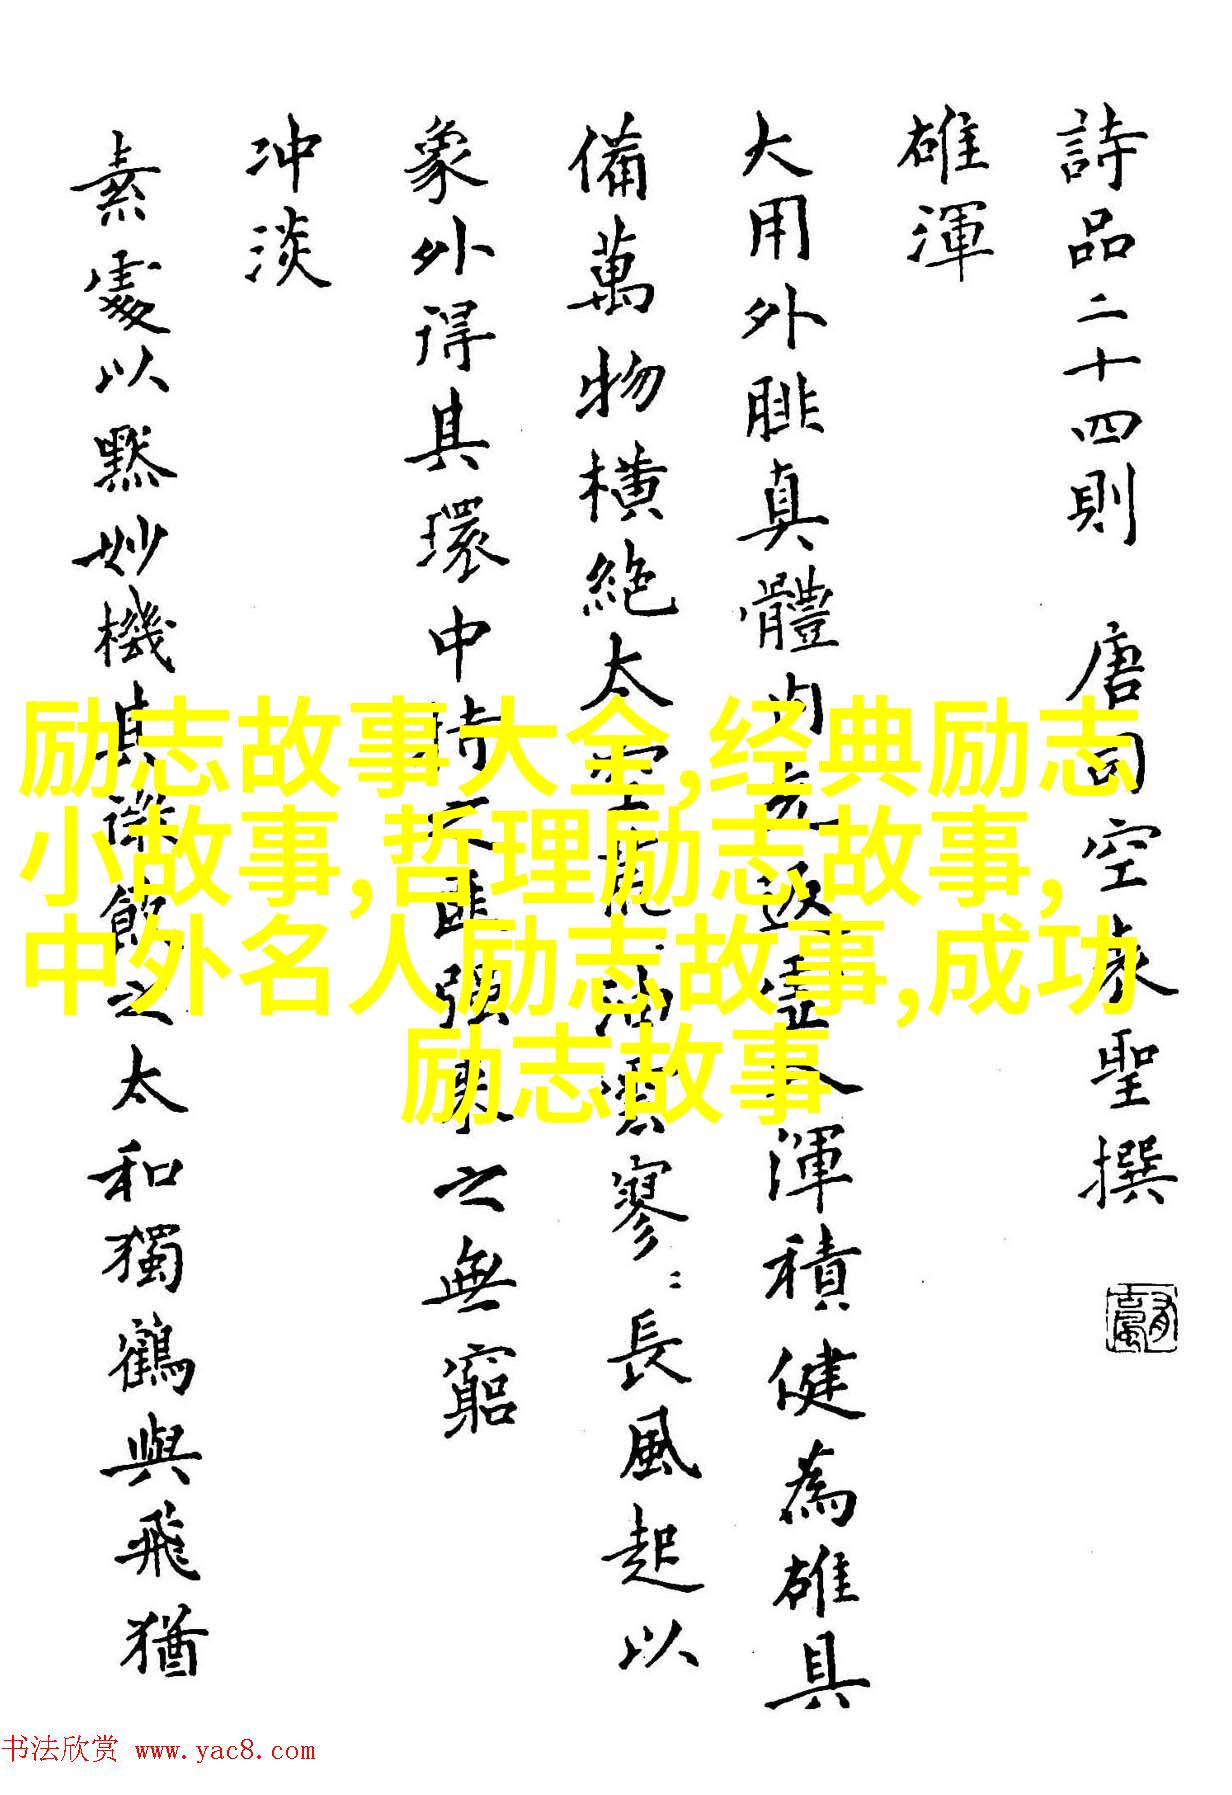 詩品二十四則 唐司空表聖撰
雄渾
大用外腓真體內充返虛入渾積健為雄具
備萬物橫絕太空荒〻油雲寥〻長風超以
象外得其環中持之匪強來之無窮
冲淡
素處以默妙機其微飲之太和獨鶴與飛猶
励志故事大全,经典励志
小故事,哲理励志故事,
中外名人励志故事,成功
励志故事
书法欣赏 www.yac8.com